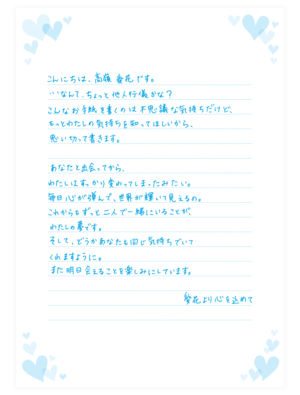 こんにちは、高嶺 葵花です。
…なんて、ちょっと他人行儀かな?
こんなお手紙を書くのは不思議な気持ちだけど、
もっとわたしの気持ちを知ってほしいから、
思い切って書きます。
あなたと出会ってから、
わたしはすっかり変わってしまったみたい。
毎日心が弾んで、世界が輝いて見えるの。
これからもずっと二人で一緒にいることが、
わたしの夢です。
そして、どうかあなたも同じ気持ちでいて
くれますように。
また明日会えることを楽しみにしています。
葵花より心を込めて